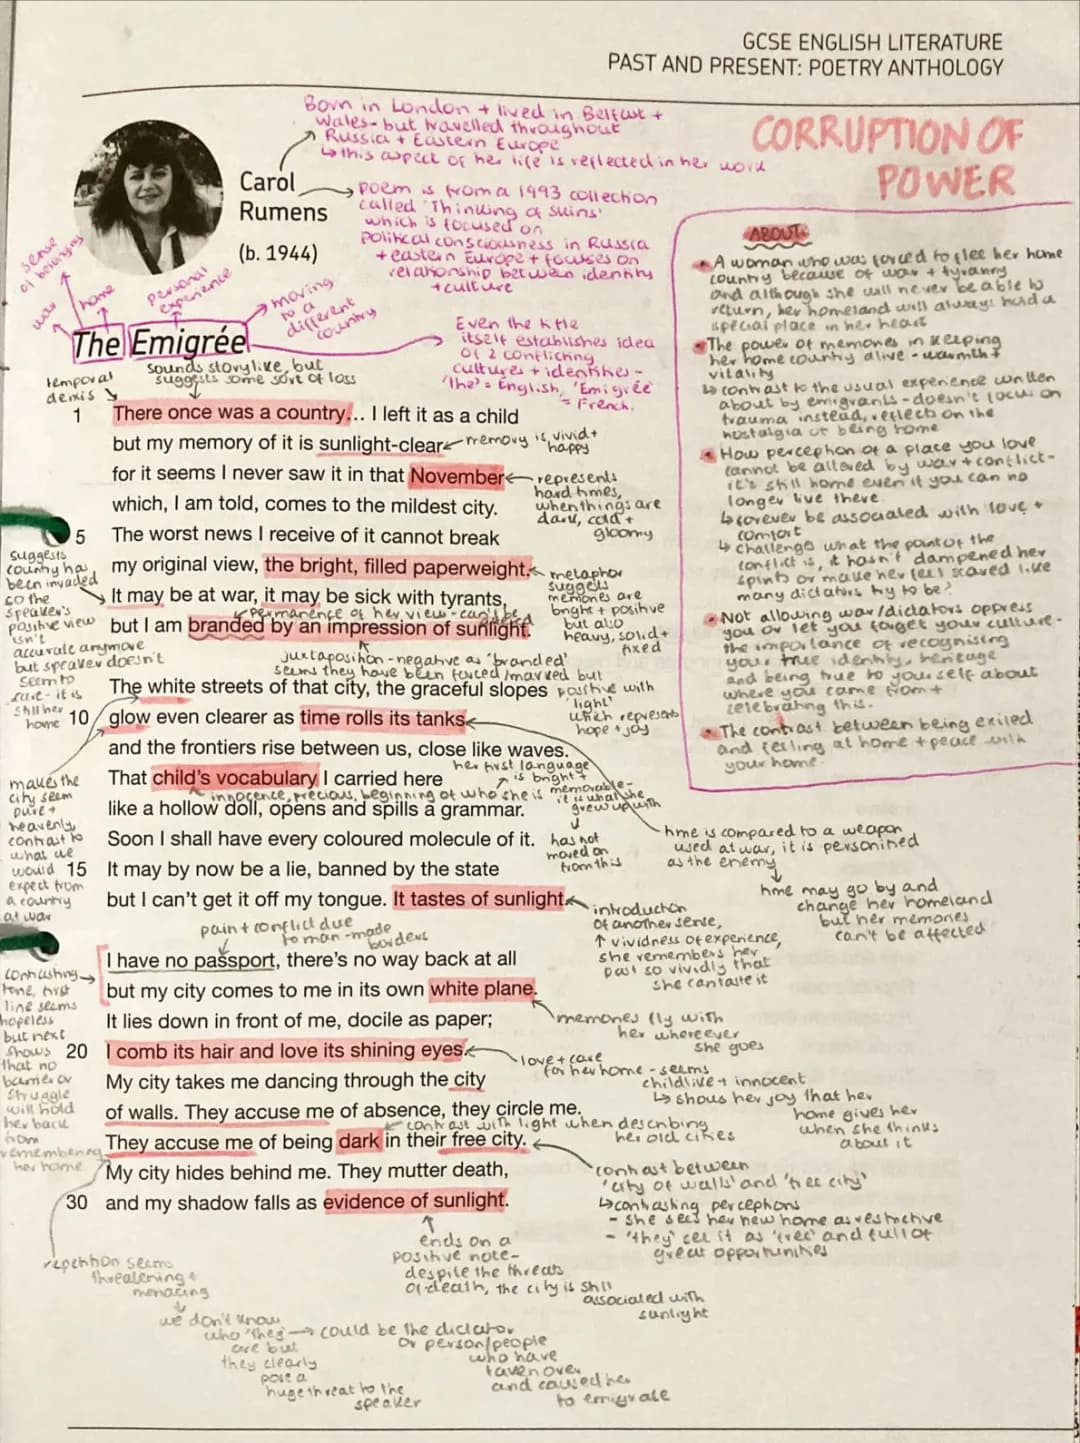 GCSE ENGLISH LITERATURE
PAST AND PRESENT: POETRY ANTHOLOGY
CORRUPTION OF
POWER
Born in London + lived in Belfast +
Wales - but travelled throughout
Russia + Eastern Europe
↳ this aspect of her life is reflected in her work
Carol
Rumens
(b. 1944)
poem is from a 1993 collection
called 'Thinking of Skins'
which is focused on
political consciousness in Russia
+ eastern Europe + focuses on
relationship between identity
+ culture
sense
of belonging
war
home
personal
experience
moving
to a
different
country
The Emigrée
Even the title
itself establishes idea
of 2 conflicting
cultures + identities -
'The' = English, 'Emigrée'
= French.
temporal
deixis
sounds storylike, but
suggests some sort of loss
ABOUT
• A woman who was forced to flee her home
country because of war + tyranny
and although she will never be able to
return, her homeland will always hold a
special place in her heart
• The power of memories in keeping
her home country alive - warmth +
vitality
↳ contrast to the usual experience written
about by emigrants - doesn't focus on
trauma instead, reflects on the
nostalgia of being home
• How perception of a place you love
cannot be altered by war + conflict -
it's still home even if you can no
longer live there.
↳ forever be associated with love +
comfort
↳ challenges what the point of the
conflict is, it hasn't dampened her
spirits or make her feel scared like
many dictators try to be?
• Not allowing war/dictators oppress
you or let you forget your culture -
the importance of recognising
your true identity, heritage
and being true to yourself about
where you came from +
celebrating this.
• The contrast between being exiled
and feeling at home + peace with
your home.
1 There once was a country... I left it as a child
but my memory of it is sunlight-clear
memory is vivid +
happy
for it seems I never saw it in that November
represents
hard times,
when things are
dark, cold +
gloomy
which, I am told, comes to the mildest city.
5 The worst news I receive of it cannot break
my original view, the bright, filled paperweight.
metaphor
suggests
memories are
bright + positive
but also
heavy, solid +
fixed
suggests
country has
been invaded
so the
speaker's
positive view
isn't
accurate anymore
but speaker doesn't
seem to
care - it is
still her
home
It may be at war, it may be sick with tyrants,
permanence of her view - can't be
but I am branded by an impression of sunlight.
juxtaposition - negative as 'branded'
seems they have been forced/marked but
positive with
'light'
which represents
hope + joy
The white streets of that city, the graceful slopes
10 glow even clearer as time rolls its tanks
and the frontiers rise between us, close like waves.
her first language
is bright +
memorable -
it is what she
grew up with
has not
moved on
from this
That child's vocabulary I carried here
innocence, precious, beginning of who she is
like a hollow doll, opens and spills a grammar.
Soon I shall have every coloured molecule of it.
15 It may by now be a lie, banned by the state
but I can't get it off my tongue. It tastes of sunlight.
makes the
city seem
pure +
heavenly,
contrast to
what we
would
expect from
a country
at war
time is compared to a weapon
used at war, it is personified
as the enemy
time may go by and
change her homeland
but her memories
can't be affected
introduction
of another sense,
↑ vividness of experience,
she remembers her
past so vividly that
she can taste it
pain + conflict due
to man-made
borders
I have no passport, there's no way back at all
but my city comes to me in its own white plane.
It lies down in front of me, docile as paper;
memories fly with
her whereever
she goes
contrasting
tone, first
line seems
hopeless
but next
shows
that no
barrier or
struggle
will hold
her back
from
remembering
her home
20 I comb its hair and love its shining eyes.
love + care
for her home - seems
childlike + innocent
↳ shows her joy that her
home gives her
when she thinks
about it
My city takes me dancing through the city
of walls. They accuse me of absence, they circle me.
contrast with light when describing
her old cities
They accuse me of being dark in their free city.
My city hides behind me. They mutter death,
30 and my shadow falls as evidence of sunlight.
contrast between
'city of walls' and 'free city'
↳ contrasting perceptions
- she sees her new home as restrictive
- 'they' see it as 'free' and full of
great opportunities
ends on a
positive note -
despite the threats
of death, the city is still
associated with
sunlight
repetition seems
threatening +
menacing
we don't know
who 'they'
are but
they clearly
pose a
huge threat to the
speaker
could be the dictator
or person/people
who have
taken over
and caused her
to emigrate